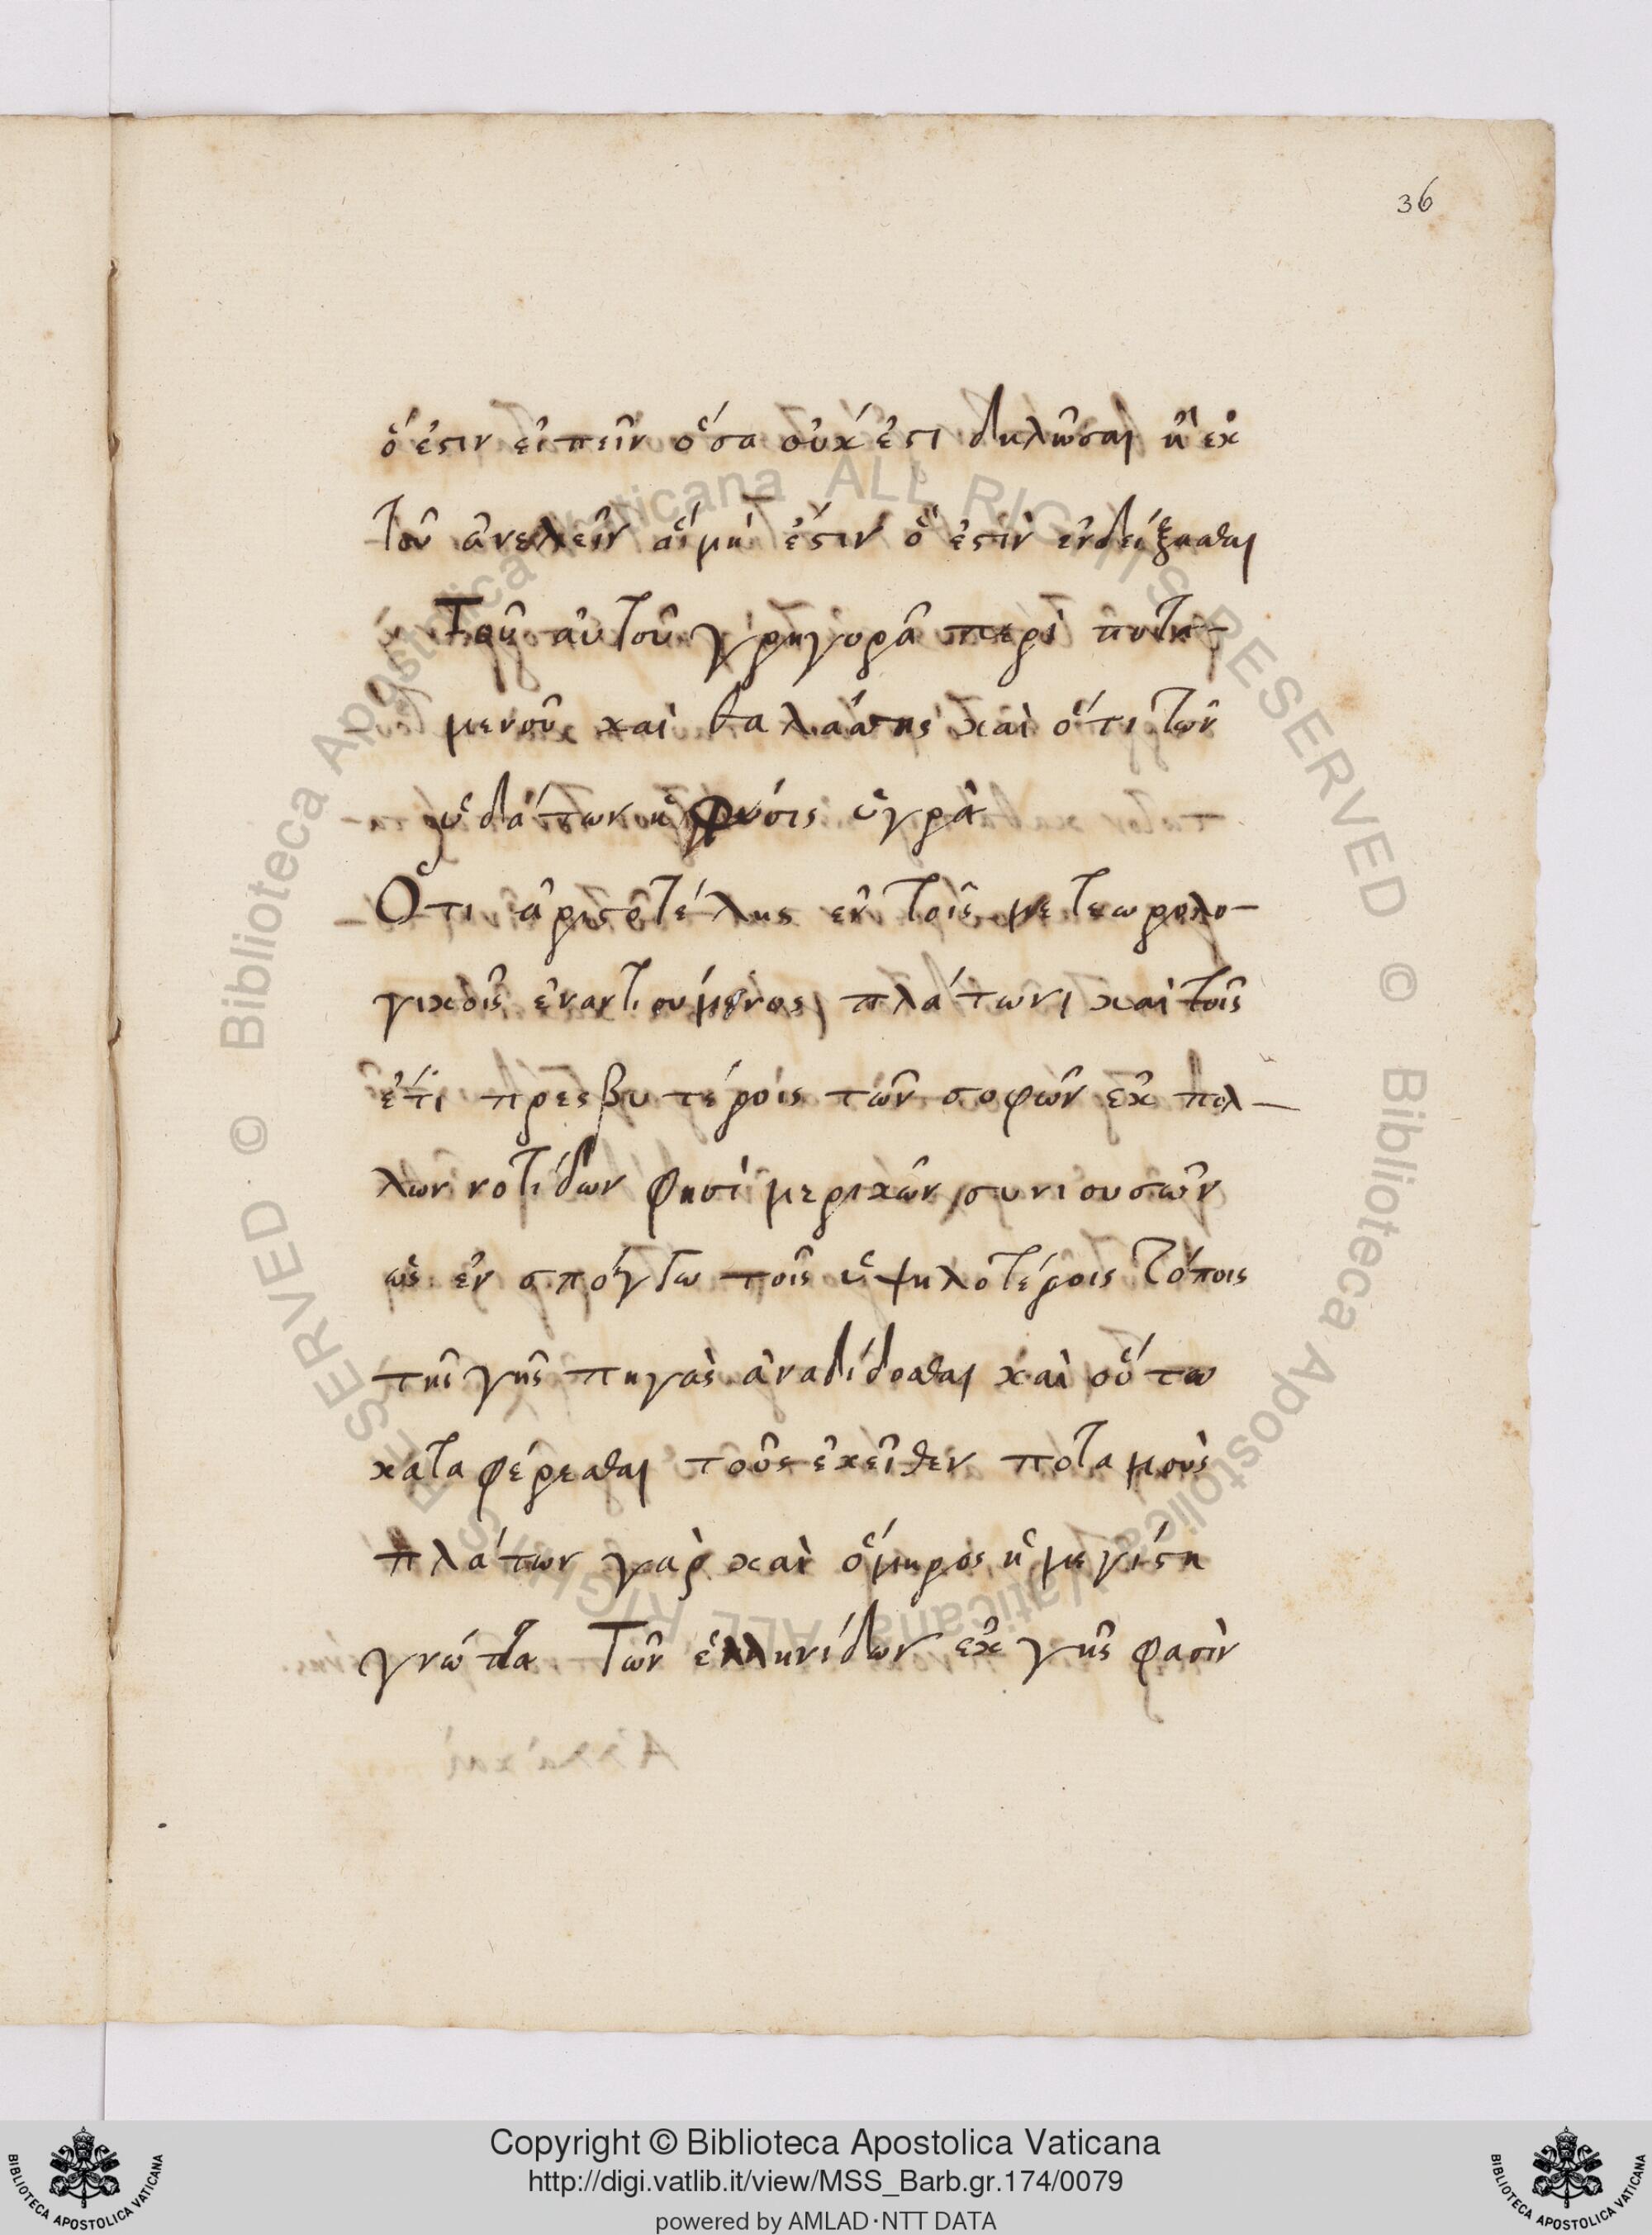 36
ὅ ἐστιν εἰπεῖν ὅσα οὐκ ἔστι δηλῶσαι ἢ ἐκ
τοῦ ἀνελεῖν ἃ μή ἐστιν ὅ ἐστὶν ἐνδείξασθαι
Τοῦ αὐτοῦ γρηγορᾶ περὶ
μενοῦ καὶ θαλάσσης καὶ ὅτι τῶν
ὑδάτων ἡ φύσις ὑγρὰ
Ὅτι ἀριστοτέλης ἐν τοῖς μετεωρολο-
γικοῖς ἐναντιούμενος πλάτωνι καὶ τοῖς
ἔτι πρεσβυτέροις τῶν σοφῶν ἐκ πολ-
λῶν νοτίδων φησὶ μερικῶν συνιουσῶν
ὡς ἐν σπόγγω τοῖς ὑψηλοτέροις τόποις
τῆς γῆς πηγὰς ἀναδίδοσθαι καὶ οὕτω
καταφέρεσθαι τοὺς ἐκεῖθεν ποταμοὺς
πλάτων γὰρ καὶ ὅμηρος ἡ μεγίστη
τῶν ἑλληνίδων ἐκ γῆς φασὶν
Copyright © Biblioteca Apostolica Vaticana
http://digi.vatlib.it/view/MSS_Barb.gr.174/0079
powered by AMLAD·NTT DATA
BIBLIOTECA APOSTOLICA VATICANA
BIBLIOTECA APOSTOLICA VATICANA
© Biblioteca Apostolica Vaticana ALL RIGHTS RESERVED
© Biblioteca Apostolica Vaticana ALL RIGHTS RESERVED